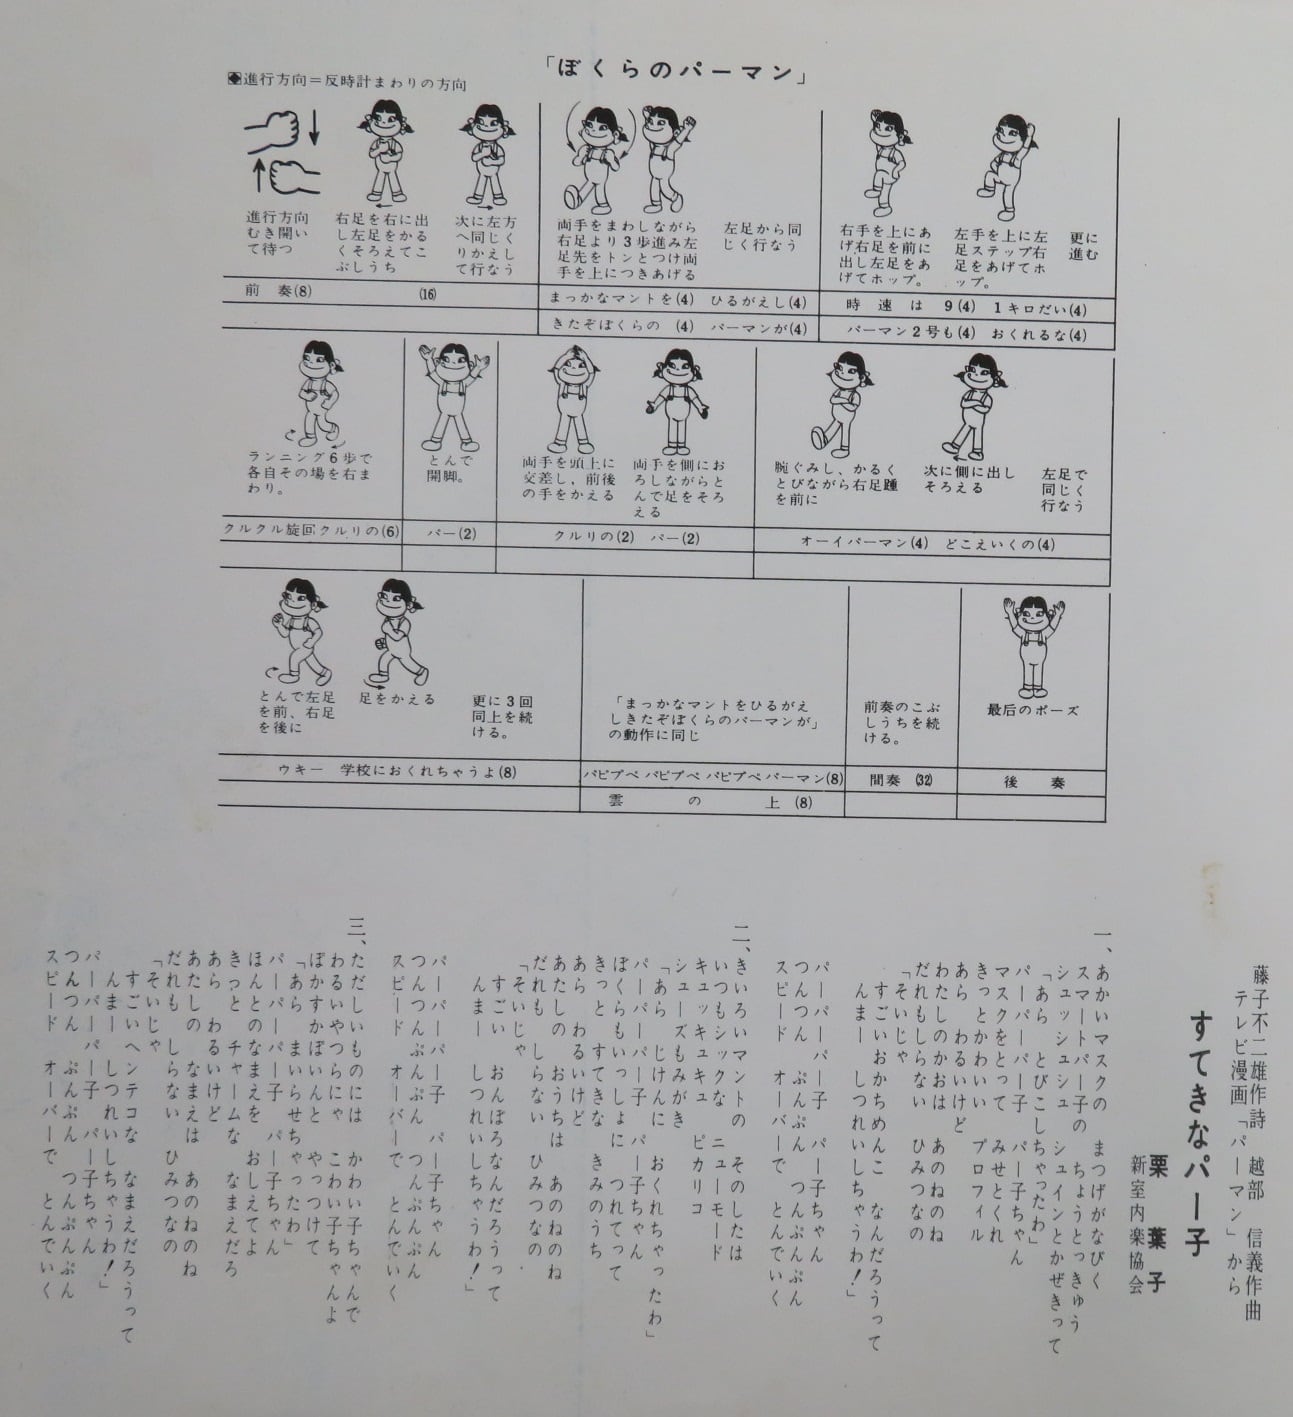 「ぼくらのパーマン」
◆進行方向＝反時計まわりの方向
進行方向
むき開い
て待つ
右足を右に出
し左足をかる
くそろえてこ
ぶしうち
次に左方
へ同じく
りかえし
て行なう
両手をまわしながら
右足より3歩進み左
足先をトンとつけ両
手を上につきあげる
左足から同
じく行なう
右手を上にあ
げ右足を前に
出し左足をあ
げてホップ。
左手を上に左
足ステップ右
足をあげてホ
ップ。
更に
進む
前 奏(8) (16)
まっかなマントを(4) ひるがえし(4)
時 速 は 9(4) 1キロだい(4)
きたぞぼくらの (4) パーマンが(4)
パーマン2号も(4) おくれるな(4)
ランニング6歩で
各自その場を右ま
わり。
とんで
開脚。
両手を頭上に
交差し、前後
の手をかえる
両手を側にお
ろしながらと
んで足をそろ
える
腕ぐみし、かるく
とびながら右足踵
を前に
次に側に出し
そろえる
左足で
同じく
行なう
クルクル旋回クルリの(6)
パー(2)
クルリの(2) パー(2)
オーイパーマン(4) どこえいくの(4)
とんで左足
を前、右足
を後に
足をかえる
更に3回
同上を続
ける。
「まっかなマントをひるがえ
しきたぞぼくらのパーマンが」
の動作に同じ
前奏のこぶ
しうちを続
ける。
最后のポーズ
ウキー 学校におくれちゃうよ(8)
パピプペ パピプペ パピプペ パーマン(8)
間奏 (32)
後 奏
雲 の 上 (8)
藤子不二雄作詩 越部 信義作曲
テレビ漫画「パーマン」から
すてきなパー子
栗 葉 子
新室内楽協会
一、あかいマスクの まつげがなびく
スマートパー子の ちょうとっきゅう
シュッシュシュ シュインとかぜきって
「あら とびこしちゃったわ」
パーパーパー子 パー子ちゃん
マスクをとって みせとくれ
きっとかわいい プロフィル
あら わるいけど
わたしのかおは あのねのね
だれもしらない ひみつなの
「そいじゃ
すごいおかちめんこ なんだろうって
んまー しつれいしちゃうわ！」
パーパーパー子 パー子ちゃん
つんつん ぷんぷん つんぷんぷん
スピード オーバーで とんでいく
二、きいろいマントの そのしたは
いつもシックな ニューモード
キュッキュッキュ ピカリコ
シューズもみがき
「あら じけんに おくれちゃったわ」
パーパーパー子 パー子ちゃん
ぼくらもいっしょに つれてって
きっと すてきな きみのうち
あら わるいけど
あたしの おうちは あのねのね
だれも しらない ひみつなの
「そいじゃ
すごい おんぼろなんだろうって
んまー しつれいしちゃうわ！」
パーパーパー子 パー子ちゃん
つんつんぷんぷん つんぷんぷん
スピード オーバーで とんでいく
三、ただしいものには かわい子ちゃんで
わるいやつらにゃ こわい子ちゃんよ
ぽかすかぽいんと やっつけて
「あら まいらせちゃったわ」
パーパーパー子 パー子ちゃん
ほんとのなまえを おしえてよ
きっと チャームな なまえだろ
あら わるいけど
あたしの なまえは あのねのね
だれも しらない ひみつなの
「そいじゃ
すごいヘンテコな なまえだろうって
んまー しつれいしちゃうわ！」
パーパーパー子 パー子ちゃん
つんつん ぷんぷん つんぷんぷん
スピード オーバーで とんでいく